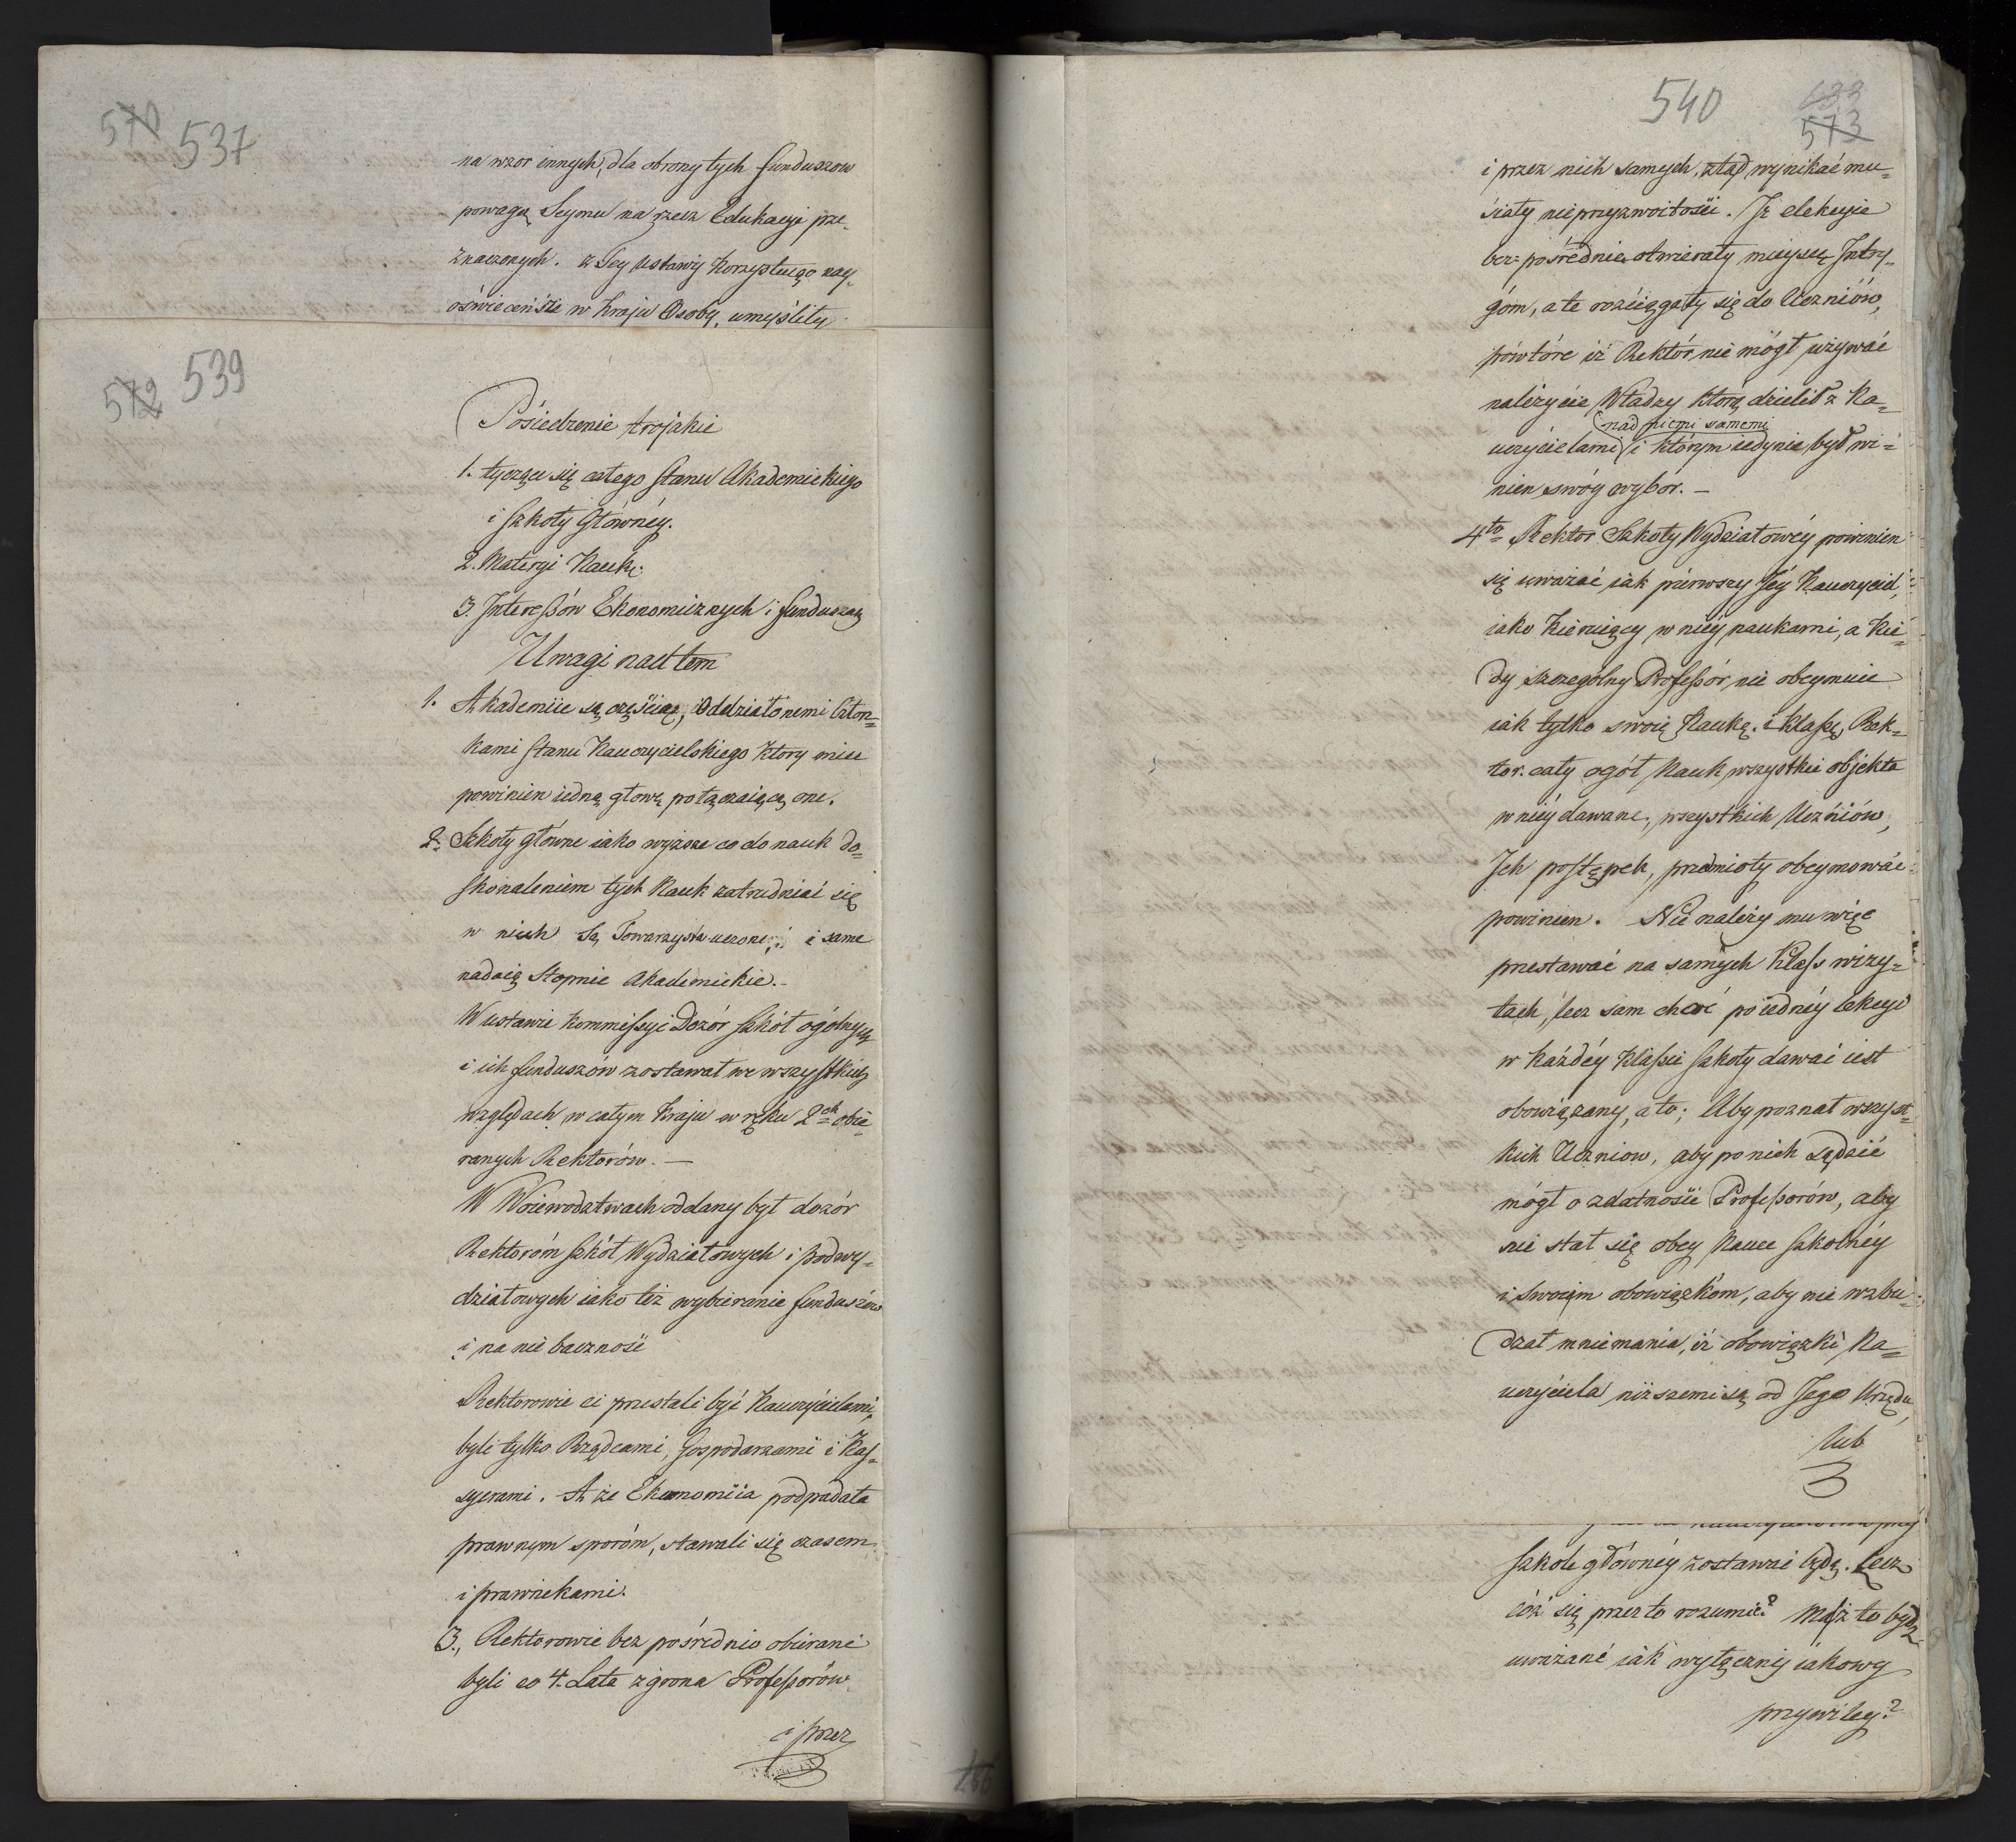 570 537
na wzor innych, dla obrony tych funduszow
powagą Seymu na rzecz Edukacyi prze-
znaczonych. z Tey Ustawy Korzystuiąc nay-
oświeceńsze w Kraju Osoby, umyśliły
572 539
Posiedzenie trojakie
1. tyczące się całego Stanu Akademickiego
i Szkoły Głównéy.
2. Materyi Nauk.
3. Interessów Ekonomicznych i funduszów
Uwagi nad tem
1. Akademiie są częścią, Oddziałonemi Człon=
kami Stanu Nauczycielskiego Ktory miec
powinien iedną głowę połączaiącą one.
2. Szkoły Główne iako wyższe co do nauk do=
skonaleniem tych Nauk zatrudniać się
w nich Są Towarzystwa uczone i same
nadaią Stopnie Akademickie.-
W ustawie Kommissyi Dozór Szkół ogólnych
i ich funduszów zostawał we wszystkich
względach w całym Kraju w ręku 2ch obie=
ranych Rektorów. —
W Woiewodztwach oddany był dozór
Rektoróm Szkół Wydziałowych i podwy=
działowych iako też wybieranie funduszów
i na nie baczność
Rektorowie ci przestali być Nauczycielami,
byli tylko Rządcami, Gospodarzami i Kas=
syerami. A że Ekonomiia podpadała
prawnym sporóm, stawali się czasem
i prawnikami.
3., Rektorowie bez pośrednio obierani
byli co 4. Lata z grona Professorów
i przez
540 573
i przez nich samych, ztąd wynikać mu=
siały nieprzyzwoitości. Iż elekcyie
bez=pośrednie otwierały mieysce Intry=
góm, a te rozciągały się do Uczniów,
powtóre iż Rektór nie mógł używać
należycie Władzy którą dzielił z Na=
nad niemi samemi
uczycielami i którym iedynie był wi=
nien swóy wybór. —
4to Rektor Szkoły Wydziałowéy powinien
się uważać iak piérwszy Jéy Nauczyciel,
iako Kieruiący w niéy naukami, a Kie=
dy szczególny Professór nie obeymuie
iak tylko swoię Naukę i Klassę, Rek=
tor cały ogół Nauk, wszystkie objekta
w niéy dawane, wszystkich Uczniów,
Ich postępek, przedmioty obeymować
powinien. Nie należy mu więc
przestawać na samych Klass wizy=
tach, lecz sam choć po iednéy lekcyi
w każdéy Klassie Szkoły dawać iest
obowiązany, a to; Aby poznał wszyst=
kich Uczniow, aby po nich sądzić
mógł o zdatności Professorów, aby
nie stał się obcy Nauce Szkolnéy
i swoim obowiązkóm, aby nie wzbu=
dzał mniemania, iż obowiązki Na=
uczyciela niższemi są od Jego Urzędu,
lub
Szkole głównéy zostawać będą. Lecz
cóż się przez to rozumie? Maż to bydź
uważané iak wyłączny iakowy
przywiley?